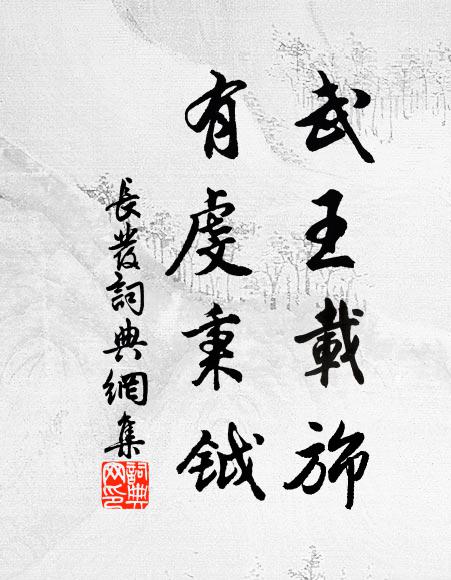 武王載旆
有虔秉鉞
長發詞典網集
詞典
网印